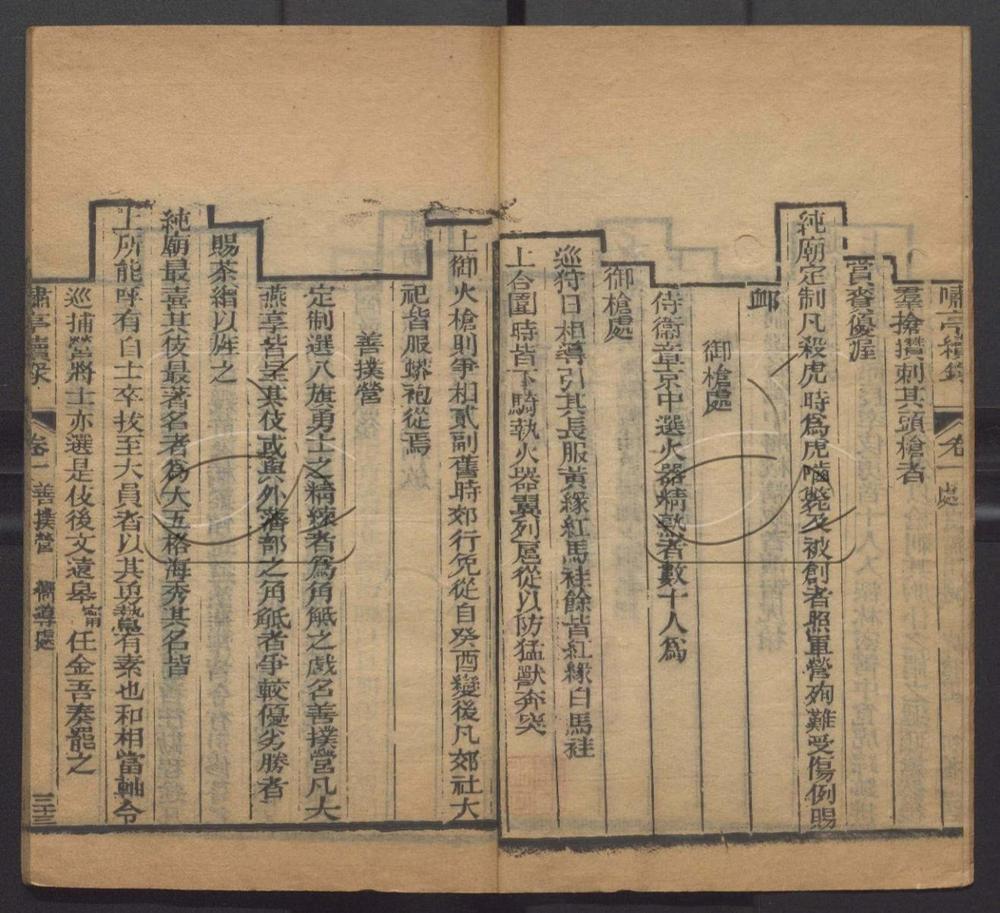 嘯亭續錄 卷一 處
羣搶攢刺其頭槍者
賞賚優渥
純廟定制凡殺虎時爲虎嚙斃及被創者照軍營殉難受傷例賜
卹
御槍處
侍衛章京中選火器精熟者數十人爲
御槍處
巡狩日相導引其長服黃緣紅馬褂餘皆紅緣白馬褂
上合圍時皆下騎執火器翼列扈從以防猛獸奔突
上御火槍則爭相貳副舊時郊行免從自癸酉變後凡郊社大
祀皆服蟒袍從焉
善撲營
定制選八旗勇士之精練者爲角觝之戲名善撲營凡大
燕享皆呈其伎或與外藩部之角觝者爭較優劣勝者
賜茶繒以旌之
純廟最喜其伎最著名者爲大五格海秀其名皆
上所能呼有自士卒拔至大員者以其勇鷙有素也和相當軸令
巡捕營將士亦選是伎後文遠臯甯任金吾奏罷之
嘯亭續錄 卷一 善撲營 嚮導處 三十三